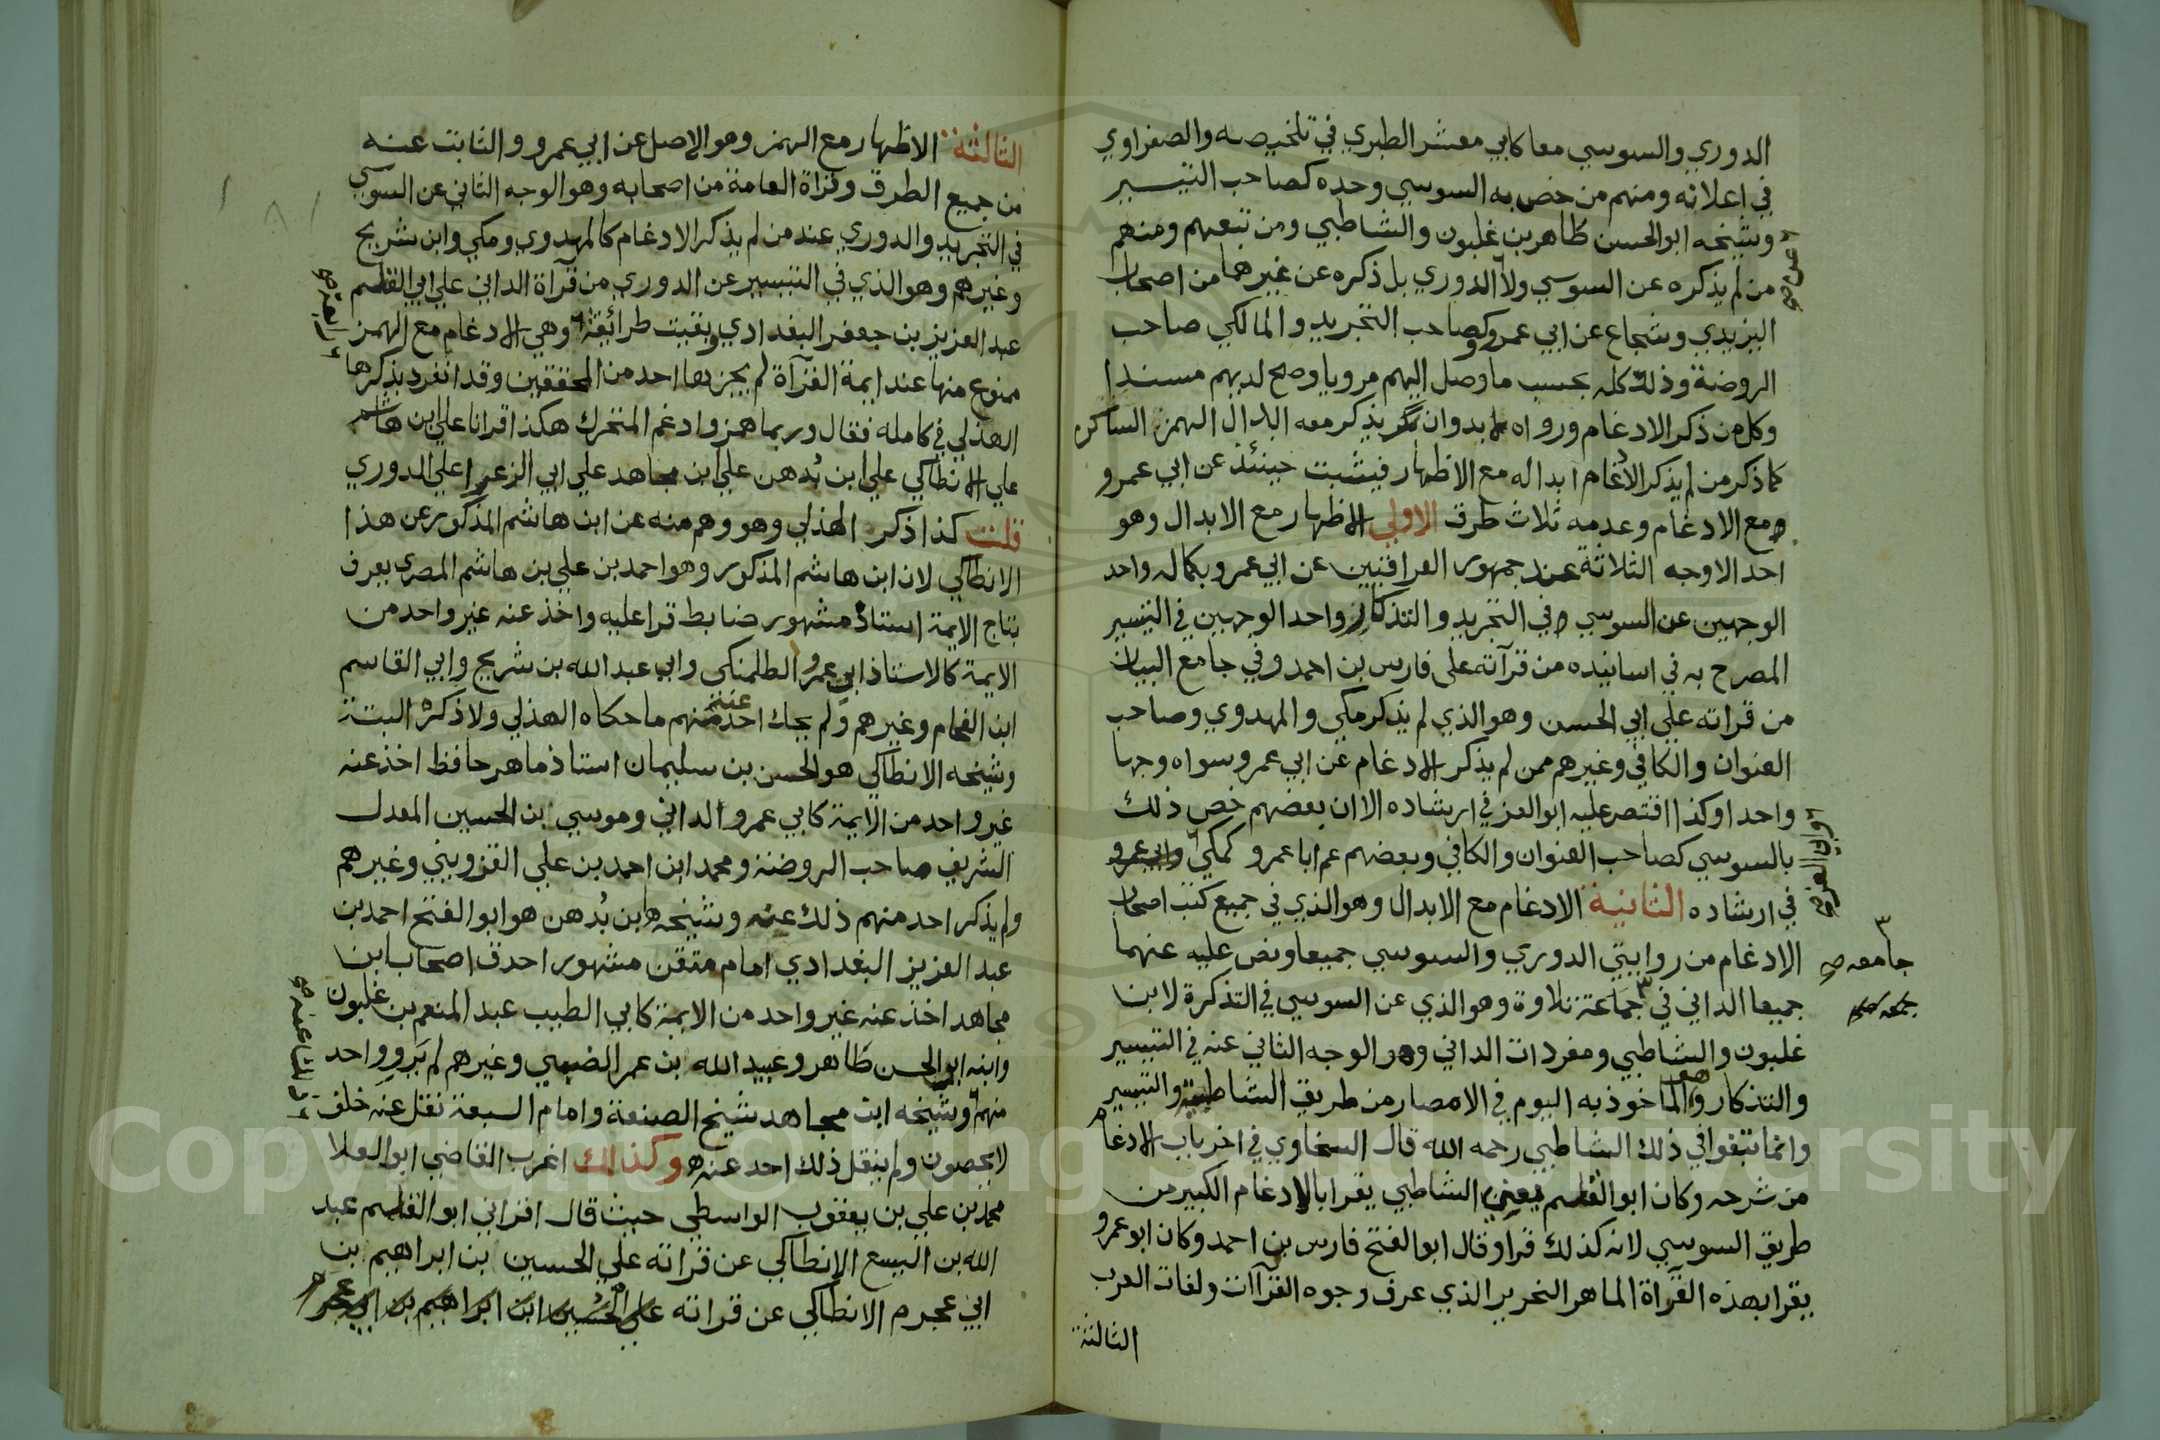 الدوري والسوسي معا كابي معشر الطبري في تلخيصه والصفراوي
في اعلانه ومنهم من خص به السوسي وحده كصاحب التيسير
وشيخه ابو الحسن طاهر بن غلبون والشاطبي ومن تبعهم ومنهم
من لم يذكره عن السوسي ولا الدوري بل ذكره عن غيرهما من اصحاب
اليزيدي وشجاع عن ابي عمرو كصاحب التجريد والمالكي صاحب
الروضة وذلك كله بحسب ما وصل اليهم مرويا وصح لديهم مسندا
وكل من ذكر الادغام ورواه لا بد وان يذكر معه ابدال الهمز الساكن
كما ذكر من لم يذكر الادغام ابداله مع الاظهار فيثبت حينئذ عن ابي عمرو
مع الادغام وعدمه ثلاث طرق الاولي الاظهار مع الابدال وهو
احد الاوجه الثلاثة عند جمهور العراقيين عن ابي عمرو بكماله واحد
الوجهين عن السوسي في التجريد والتذكار واحد الوجهين في التيسير
المصرح به في اسانيده من قرآته على فارس بن احمد وفي جامع البيان
من قراته علي ابي الحسن وهو الذي لم يذكر مكي والمهدوي وصاحب
العنوان والكافي وغيرهم ممن لم يذكر الادغام عن ابي عمرو سواه وجها
واحدا وكذا اقتصر عليه ابو العز في ارشاده الا ان بعضهم خص ذلك
بالسوسي كصاحب العنوان والكافي وبعضهم عم ابا عمرو كمكي وابي عمرو
وابي العز صح
في ارشاده الثانية الادغام مع الابدال وهو الذي في جميع كتب اصحاب
الادغام من روايتي الدوري والسوسي جميعا ونص عليه عنهما
جامعه صح
جميعا الداني في جماعة تلاوة وهو الذي عن السوسي في التذكرة لابن
غلبون والشاطبي ومفردات الداني وهو الوجه الثاني عنه في التيسير
والتذكار وهو الماخوذ به اليوم في الامصار من طريق الشاطبية والتيسير
وانما تبعوا في ذلك الشاطبي رحمه الله قال السخاوي في اخر باب الادغام
من شرحه وكان ابو القاسم يعني الشاطبي يقرا بالادغام الكبير من
طريق السوسي لانه كذلك قرا وقال ابو الفتح فارس بن احمد وكان ابو عمرو
يقرا بهذه القرآة الماهر النحرير الذي عرف وجوه القرآات ولغات العرب
الثالثة
الثالثة الاظهار مع الهمز وهو الاصل عن ابي عمرو والثابت عنه
من جميع الطرق وقرآة العامة من اصحابه وهو الوجه الثاني عن السوسي
في التجريد والدوري عند من لم يذكر الادغام كالمهدوي ومكي وابن شريح
وغيرهم وهو الذي في التيسير عن الدوري من قرآة الداني علي ابي القاسم
عبد العزيز بن جعفر البغدادي وبقيت طرائقة وهي الادغام مع الهمز
رابعة صح
ممنوع منها عند ايمة القرآة لم يجزها احد من المحققين وقد انفرد بذكرها
الهذلي في كامله فقال وربما همز وادغم المتحرك هكذا اقرانا علي ابن هاشم
علي الانطاكي علي ابن بُدهن علي ابن مجاهد علي ابي الزعرا علي الدوري
قلت كذا ذكر الهذلي وهو وهم منه عن ابن هاشم المذكور عن هذا
الانطاكي لان ابن هاشم المذكور وهو احمد بن علي بن هاشم المصري يعرف
بتاج الايمة استاذ مشهور ضابط قرا عليه واخذ عنه غير واحد من
الايمة كالاستاذ ابي عمرو الطلمنكي وابي عبد الله بن شريح وابي القاسم
ابن الفحام وغيرهم ولم يحك احد منهم عنه ما حكاه الهذلي ولا ذكره البتة
وشيخه الانطاكي هو الحسن بن سليمان استاذ ماهر حافظ اخذ عنه
غير واحد من الايمة كابي عمرو الداني وموسي بن الحسين المعدل
الشريف صاحب الروضة ومحمد ابن احمد بن علي القزويني وغيرهم
ولم يذكر احد منهم ذلك عنه وشيخه ابن بُدهن هو ابو الفتح احمد بن
عبد العزيز البغدادي امام متقن مشهور احدق اصحاب ابن
مجاهد اخذ عنه غير واحد من الايمة كابي الطيب عبد المنعم بن غلبون
وابنه ابي الحسن طاهر وعبيد الله بن عمر الضبي وغيرهم لم يرو واحد
منهم وشيخه ابن مجاهد شيخ الصنعة وامام السبعة نقل عنه خلق
ذلك عنه صح
لا يحصون ولم ينقل ذلك احد عنه وكذلك اغرب القاضي ابو العلا
محمد بن علي بن يعقوب الواسطي حيث قال اقراني ابو القاسم عبد
الله بن اليسع الانطاكي عن قراته علي الحسين بن ابراهيم بن
ابي عجرم الانطاكي عن قراته علي الحسين ابن ابراهيم بن ابي عجرم
Copyright © King Saud University